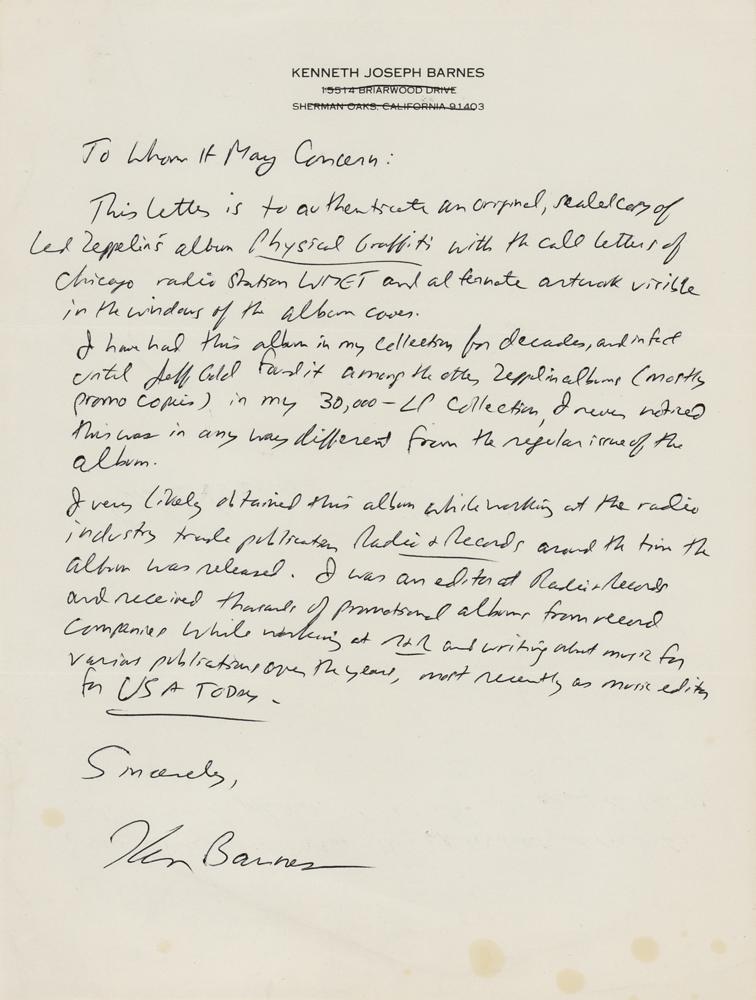 KENNETH JOSEPH BARNES
15514 BRIARWOOD DRIVE
SHERMAN OAKS, CALIFORNIA 91403
To Whom It May Concern:
This letter is to authenticate an original, sealed copy of
Led Zeppelin's album Physical Graffiti with the call letters of
Chicago radio station WMET and alternate artwork visible
in the windows of the album cover.
I have had this album in my collection for decades, and in fact
until Jeff Gold found it among the other Zeppelin albums (mostly
promo copies) in my 30,000-LP collection, I never noticed
this was in any way different from the regular issue of the
album.
I very likely obtained this album while working at the radio
industry trade publication Radio & Records around the time the
album was released. I was an editor at Radio & Records
and received thousands of promotional albums from record
companies while working at R&R and writing about music for
various publications over the years, most recently as music editor
for USA TODAY.
Sincerely,
Ken Barnes